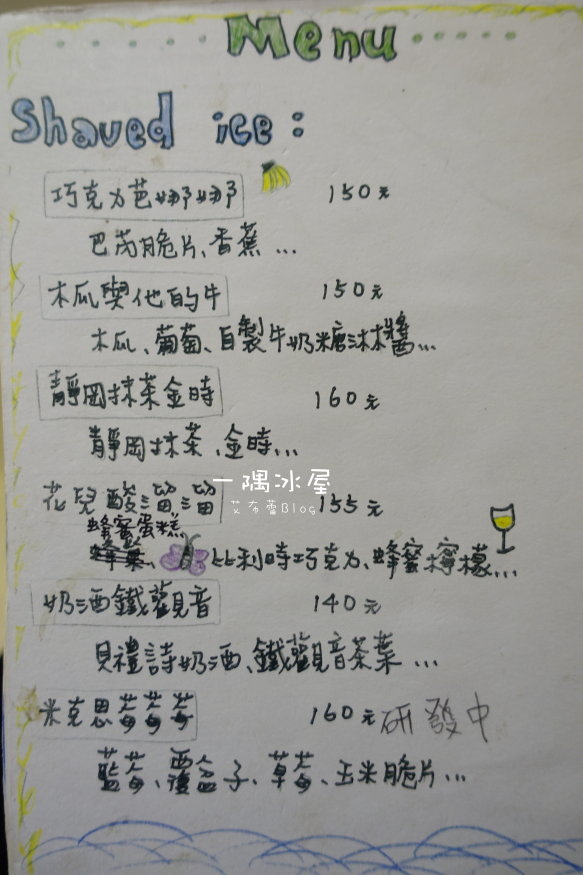 Menu
Shaved ice:
巧克力芭娜娜 150元
巴芮脆片、香蕉...
木瓜與他的牛 150元
木瓜、葡萄、自製牛奶糖沐林醬...
靜岡抹茶金時 160元
靜岡抹茶、金時...
一隅冰屋
花兒酸溜溜 155元
艾布蕾Blog
蜂蜜蛋糕
比利時巧克力、蜂蜜檸檬...
奶酒鐵觀音 140元
貝禮詩奶酒、鐵觀音茶葉...
米克思莓莓莓 160元 研發中
藍莓、覆盆子、草莓、玉米脆片...